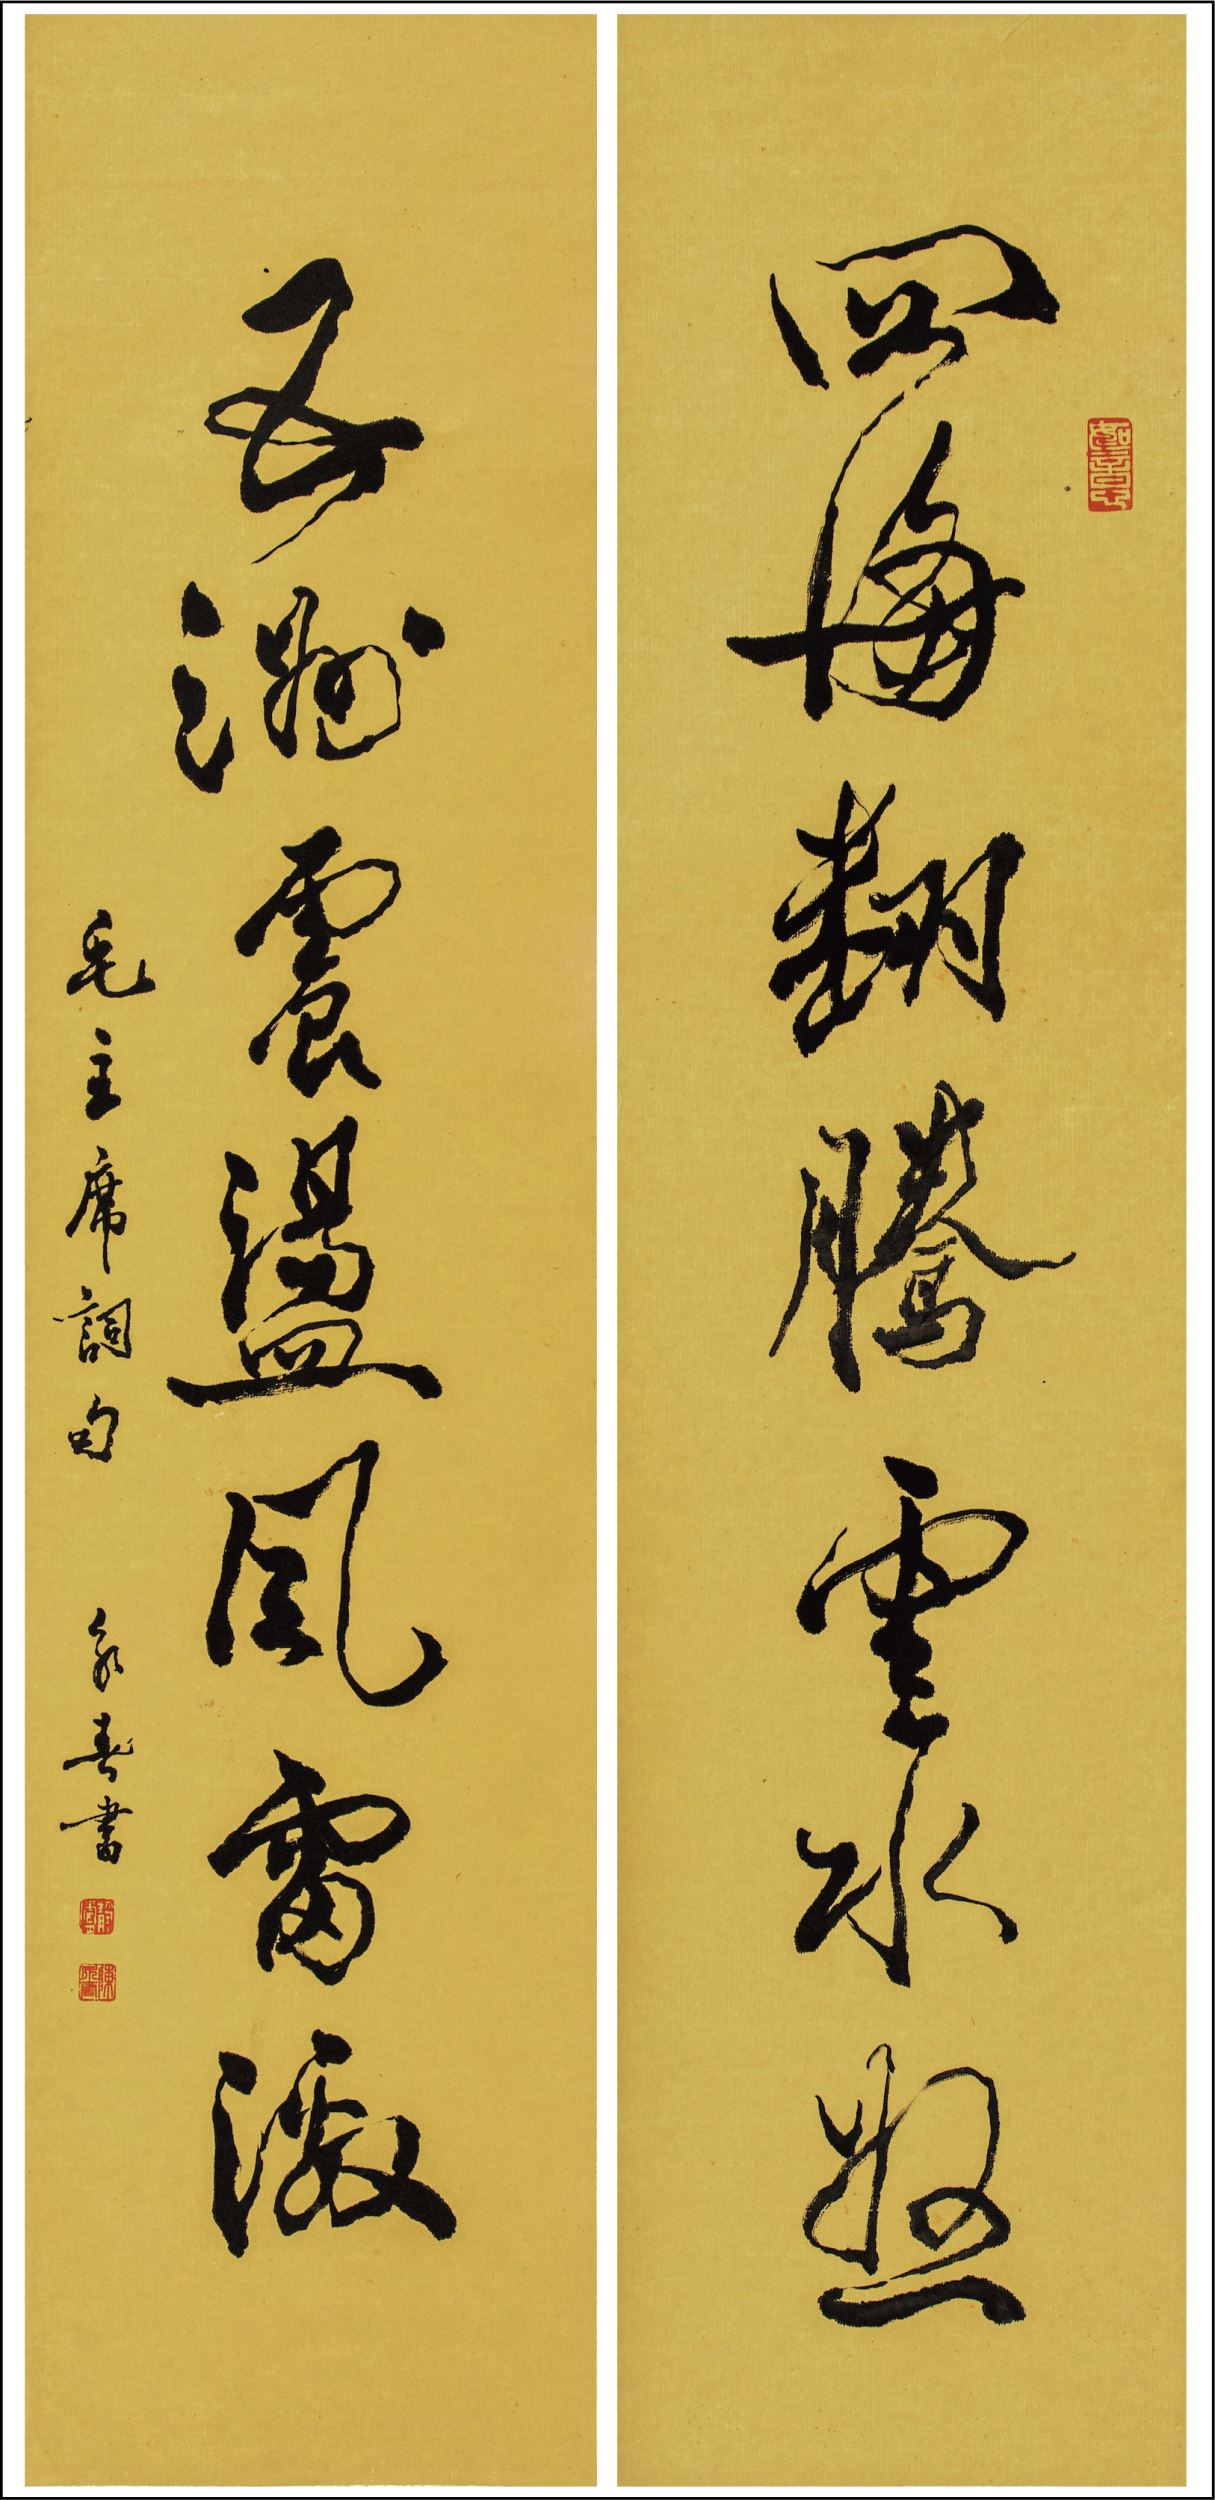 四海翻騰雲水怒
五洲震盪風雷激
毛主席詞句
書